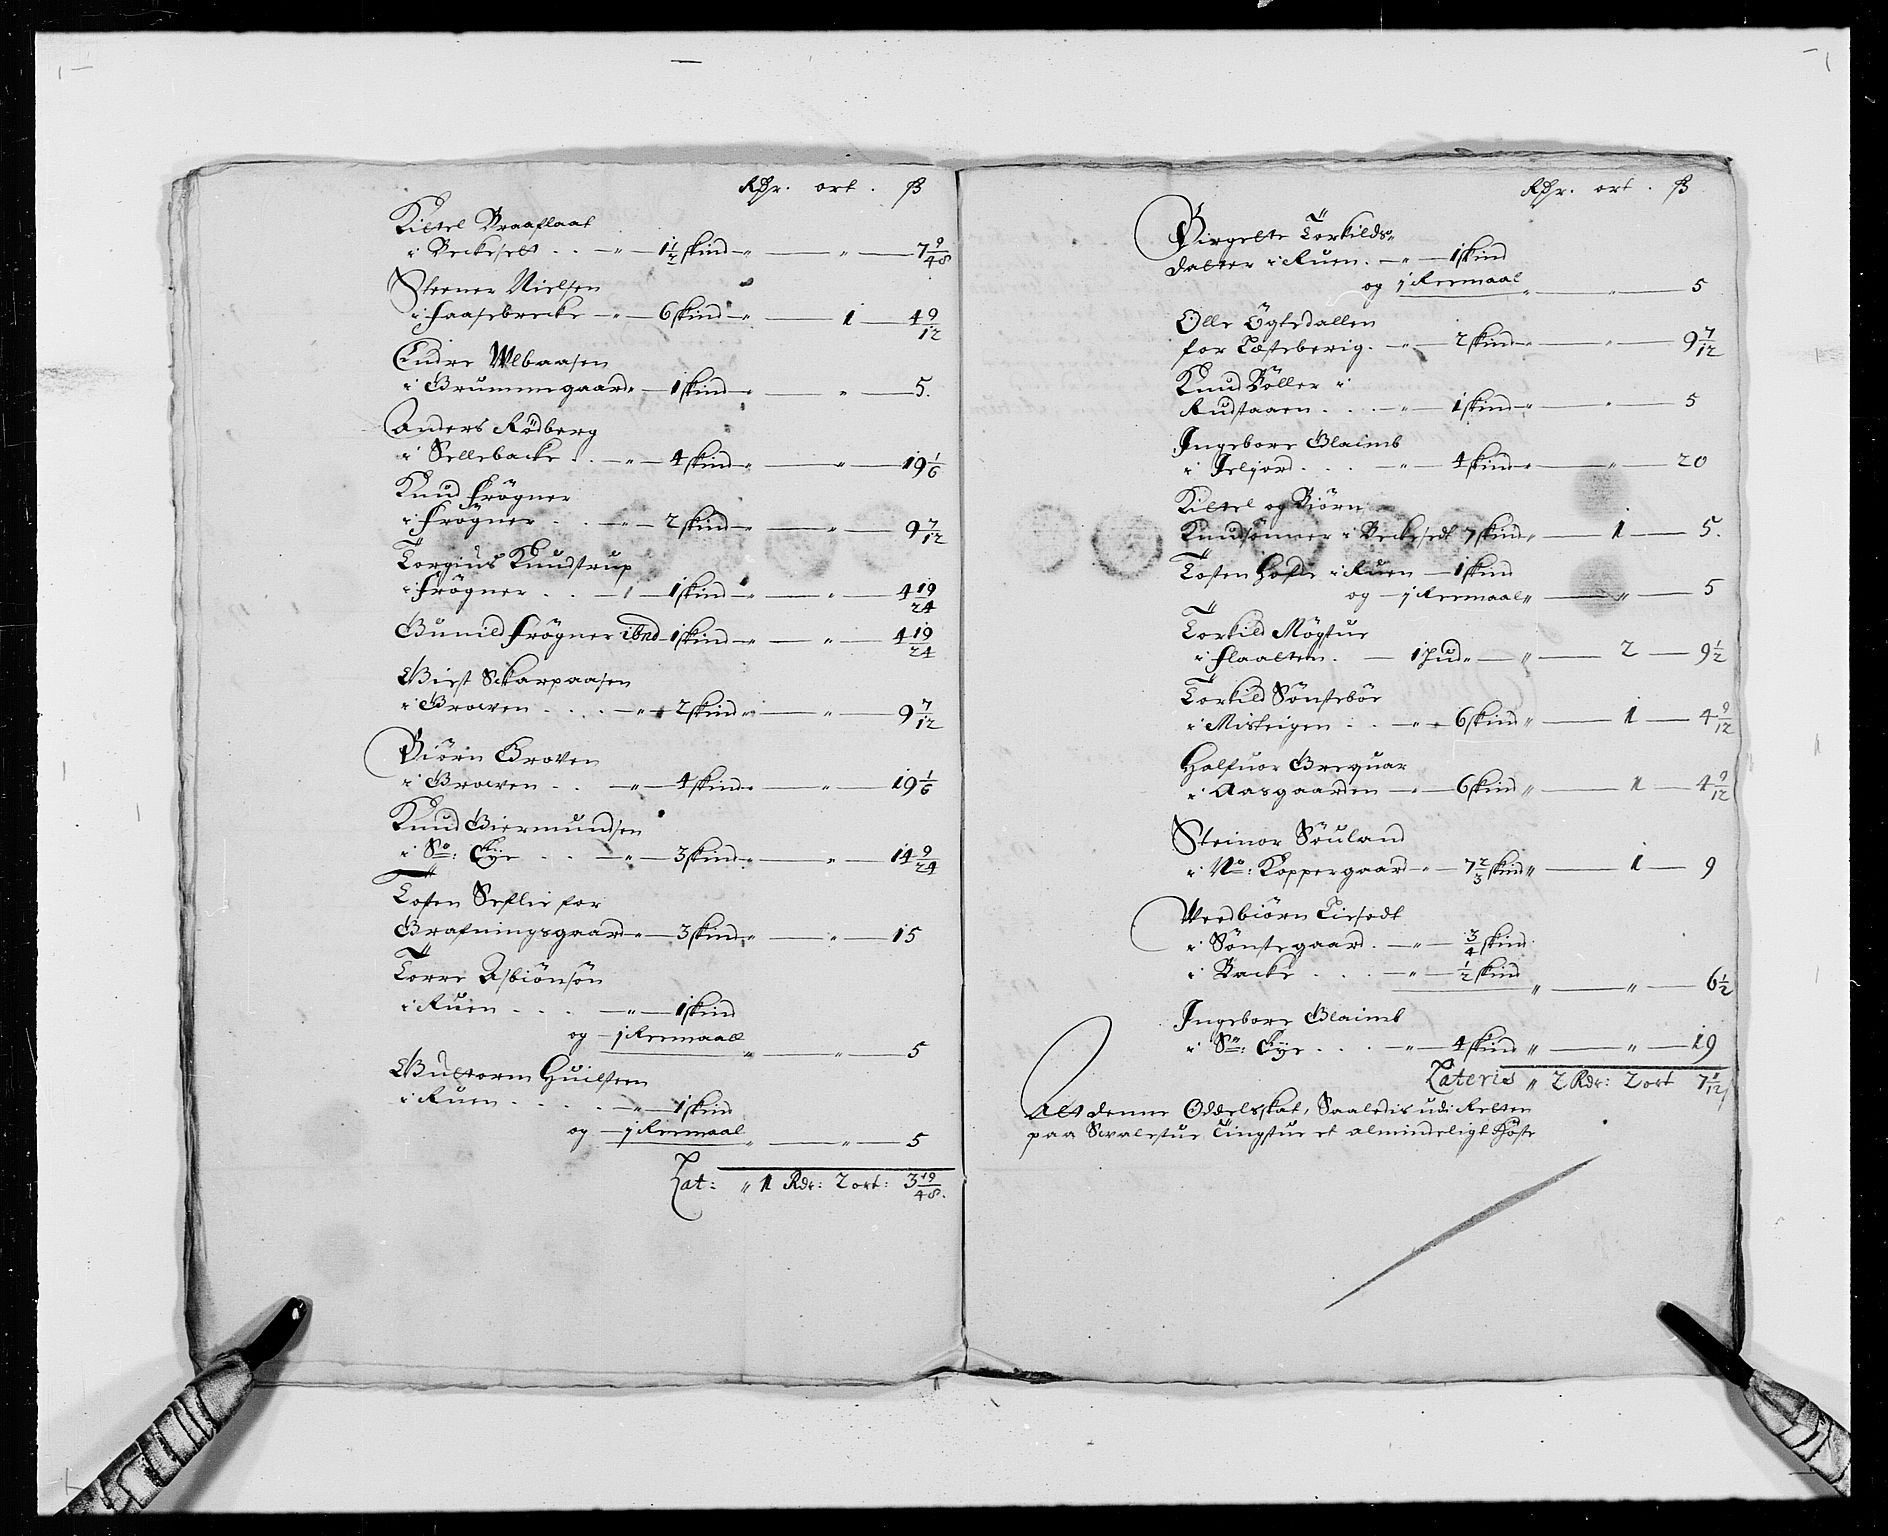 Rdr. ort. ß
Kittel Braaflaat
i Beckeseltt . . - „ - 1½ skind „ — „ — 7 9/48
Steener Nielsen
i Haasebrecke - „ - 6 skind „ — 1 — 4 9/12
Endre Ulbaasen
i Grummegaard „ - 1 skind „ — „ — 5.
Anders Rödberg
i Sellebacke . . - „ - 4 skind „ — „ — 19 1/6
Knud frögner
i frögner . . - „ - 2 skind „ — „ — 9 7/12
Torgius Knudstrup
i frögner . . - „ - 1 skind „ — „ — 4 19/24
Gunild frögner ibnd - 1 skind „ — „ — 4 19/24
Giest Skarpaasen
i Growen . . . . - „ - 2 skind „ — „ — 9 7/12
Biörn Groven
i Growen . . - „ - 4 skind „ — „ — 19 1/6
Knud Giermundsen
i Sö: Eye . . - „ - 3 skind „ — „ — 14 9/24
Tosten Seflie for
Grafningsgaard „ - 3 skind „ — „ — 15
Torre Asbiönsön
i Ruen . . . - „ - 1 skind
og - j Reemaall „ — „ — 5
Guttorm Huilsteen
i Ruen . . . . - „ - 1 skind
og - j Reemaal „ — „ — 5
Lat: „ 1 Rdr: 2 ort: 3 19/48.
Rdr. ort. ß
Birgette Torkilds„
datter i Ruen. - „ - 1 skind
og j Reemaal „ — „ — 5
Olle Ögtedallen
for Tæsteberig. - „ - 2 skind „ — „ — 9 7/12
Knud Böller i
Rudtaaen . . . - „ - 1 skind „ — „ — 5
Ingebore Glaimb
i Jeljord . . . „ - 4 skind „ — „ — 20
Kittel og Biörn
Knudsönner i Beckesedt 7 skind „ — 1 — 5.
Tosten Hofde i Ruen - 1 skind
og - j Reemaal „ — „ — 5
Torkild Mögtue
i flaatten. - 1 Hud „ - „ — 2 — 9½
Torkild Sönstebör
i Misteigen . . - „ - 6 skind „ — 1 — 4 9/12
Halfuor Grequar
i Aasgaarden - „ - 6 skind „ — 1 — 4 9/12
Steinor Söuland
i No: Koppergaard - „ - 7⅔ skind „ — 1 — 9
Veedbiörn Tiesedt
i Sönstegaard. - „ - ¾ skind
i Backe . . . - „ - ½ skind „ — „ — 6½
Ingebore Glaimb
i Sö: Eye . . . - „ - 4 skind „ — „ — 19
Lateris „ 2 Rdr: 2 ort 7 1/12
Alt denne Oddelsskat, Saaledis udi Retten
paa Svalestue Tingstue et almindeligt Höste